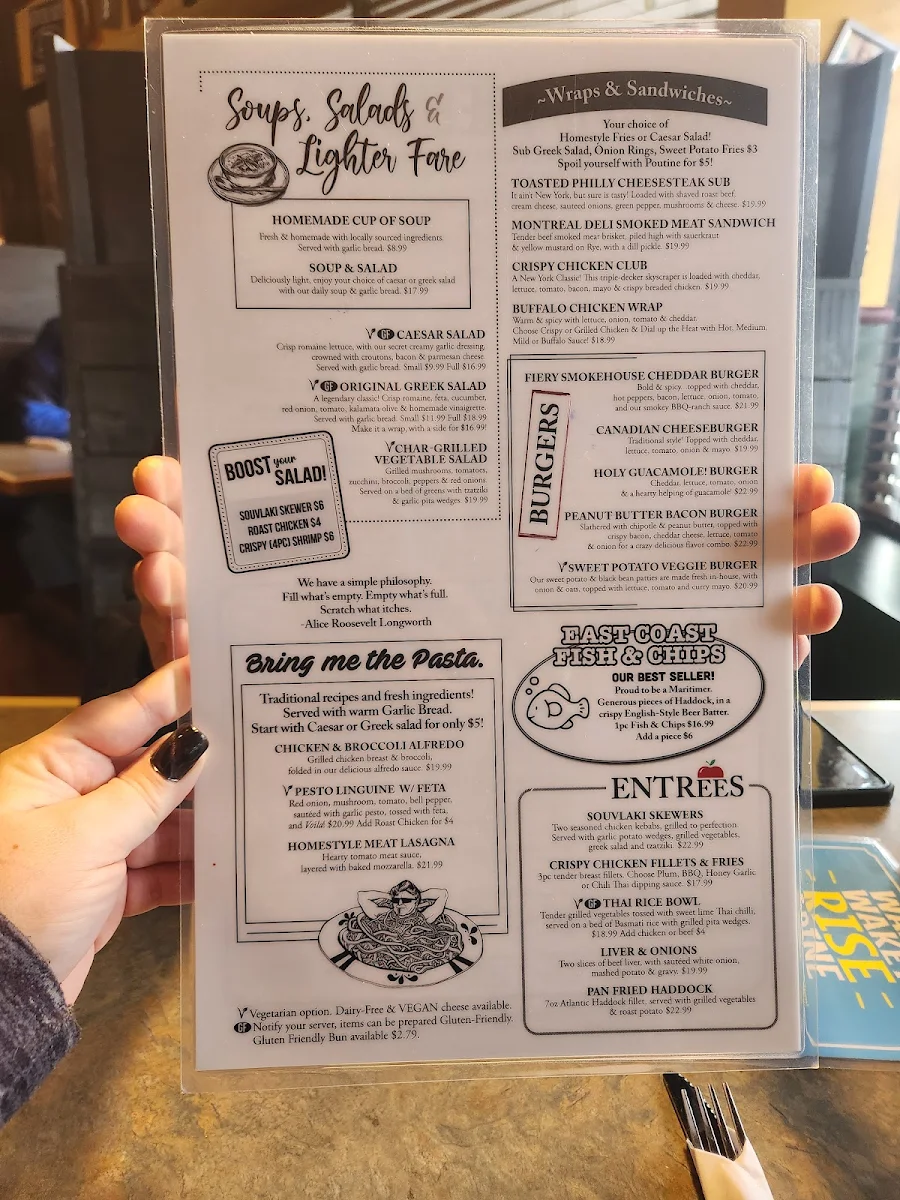 Soups, Salads &
Lighter Fare
HOMEMADE CUP OF SOUP
Fresh & homemade with locally sourced ingredients.
Served with garlic bread. $8.99
SOUP & SALAD
Deliciously light, enjoy your choice of caesar or greek salad
with our daily soup & garlic bread. $17.99
V GF CAESAR SALAD
Crisp romaine lettuce, with our secret creamy garlic dressing,
crowned with croutons, bacon & parmesan cheese.
Served with garlic bread. Small $9.99 Full $16.99
V GF ORIGINAL GREEK SALAD
A legendary classic! Crisp romaine, feta, cucumber,
red onion, tomato, kalamata olive & homemade vinaigrette.
Served with garlic bread. Small $11.99 Full $18.99
Make it a wrap, with a side for $16.99!
V CHAR-GRILLED
VEGETABLE SALAD
Grilled mushrooms, tomatoes,
zucchini, broccoli, peppers & red onions.
Served on a bed of greens with tzatziki
& garlic pita wedges. $19.99
BOOST your
SALAD!
SOUVLAKI SKEWER $6
ROAST CHICKEN $4
CRISPY (4PC) SHRIMP $6
We have a simple philosophy.
Fill what's empty. Empty what's full.
Scratch what itches.
-Alice Roosevelt Longworth
Bring me the Pasta.
Traditional recipes and fresh ingredients!
Served with warm Garlic Bread.
Start with Caesar or Greek salad for only $5!
CHICKEN & BROCCOLI ALFREDO
Grilled chicken breast & broccoli,
folded in our delicious alfredo sauce. $19.99
V PESTO LINGUINE W/ FETA
Red onion, mushroom, tomato, bell pepper,
sautéed with garlic pesto, tossed with feta,
and Voilà! $20.99 Add Roast Chicken for $4
HOMESTYLE MEAT LASAGNA
Hearty tomato meat sauce,
layered with baked mozzarella. $21.99
V Vegetarian option. Dairy-Free & VEGAN cheese available.
GF Notify your server, items can be prepared Gluten-Friendly.
Gluten Friendly Bun available $2.79.
~Wraps & Sandwiches~
Your choice of
Homestyle Fries or Caesar Salad!
Sub Greek Salad, Onion Rings, Sweet Potato Fries $3
Spoil yourself with Poutine for $5!
TOASTED PHILLY CHEESESTEAK SUB
It ain't New York, but sure is tasty! Loaded with shaved roast beef,
cream cheese, sauteed onions, green pepper, mushrooms & cheese. $19.99
MONTREAL DELI SMOKED MEAT SANDWICH
Tender beef smoked meat brisket, piled high with sauerkraut
& yellow mustard on Rye, with a dill pickle. $19.99
CRISPY CHICKEN CLUB
A New York Classic! This triple-decker skyscraper is loaded with cheddar,
lettuce, tomato, bacon, mayo & crispy breaded chicken. $19.99
BUFFALO CHICKEN WRAP
Warm & spicy with lettuce, onion, tomato & cheddar.
Choose Crispy or Grilled Chicken & Dial up the Heat with Hot, Medium,
Mild or Buffalo Sauce! $18.99
BURGERS
FIERY SMOKEHOUSE CHEDDAR BURGER
Bold & spicy...topped with cheddar,
hot peppers, bacon, lettuce, onion, tomato,
and our smokey BBQ-ranch sauce. $21.99
CANADIAN CHEESEBURGER
Traditional style! Topped with cheddar,
lettuce, tomato, onion & mayo. $19.99
HOLY GUACAMOLE! BURGER
Cheddar, lettuce, tomato, onion
& a hearty helping of guacamole! $22.99
PEANUT BUTTER BACON BURGER
Slathered with chipotle & peanut butter, topped with
crispy bacon, cheddar cheese, lettuce, tomato
& onion for a crazy delicious flavor combo. $22.99
V SWEET POTATO VEGGIE BURGER
Our sweet potato & black bean patties are made fresh in-house, with
onion & oats, topped with lettuce, tomato and curry mayo. $20.99
EAST COAST
FISH & CHIPS
OUR BEST SELLER!
Proud to be a Maritimer.
Generous pieces of Haddock, in a
crispy English-Style Beer Batter.
1pc Fish & Chips $16.99
Add a piece $6
ENTRÉES
SOUVLAKI SKEWERS
Two seasoned chicken kebabs, grilled to perfection.
Served with garlic potato wedges, grilled vegetables,
greek salad and tzatziki. $22.99
CRISPY CHICKEN FILLETS & FRIES
3pc tender breast fillets. Choose Plum, BBQ, Honey Garlic
or Chili Thai dipping sauce. $17.99
V GF THAI RICE BOWL
Tender grilled vegetables tossed with sweet lime Thai chili,
served on a bed of Basmati rice with grilled pita wedges.
$18.99 Add chicken or beef $4
LIVER & ONIONS
Two slices of beef liver, with sautéed white onion,
mashed potato & gravy. $19.99
PAN FRIED HADDOCK
7oz Atlantic Haddock fillet, served with grilled vegetables
& roast potato $22.99
WAKE
RISE